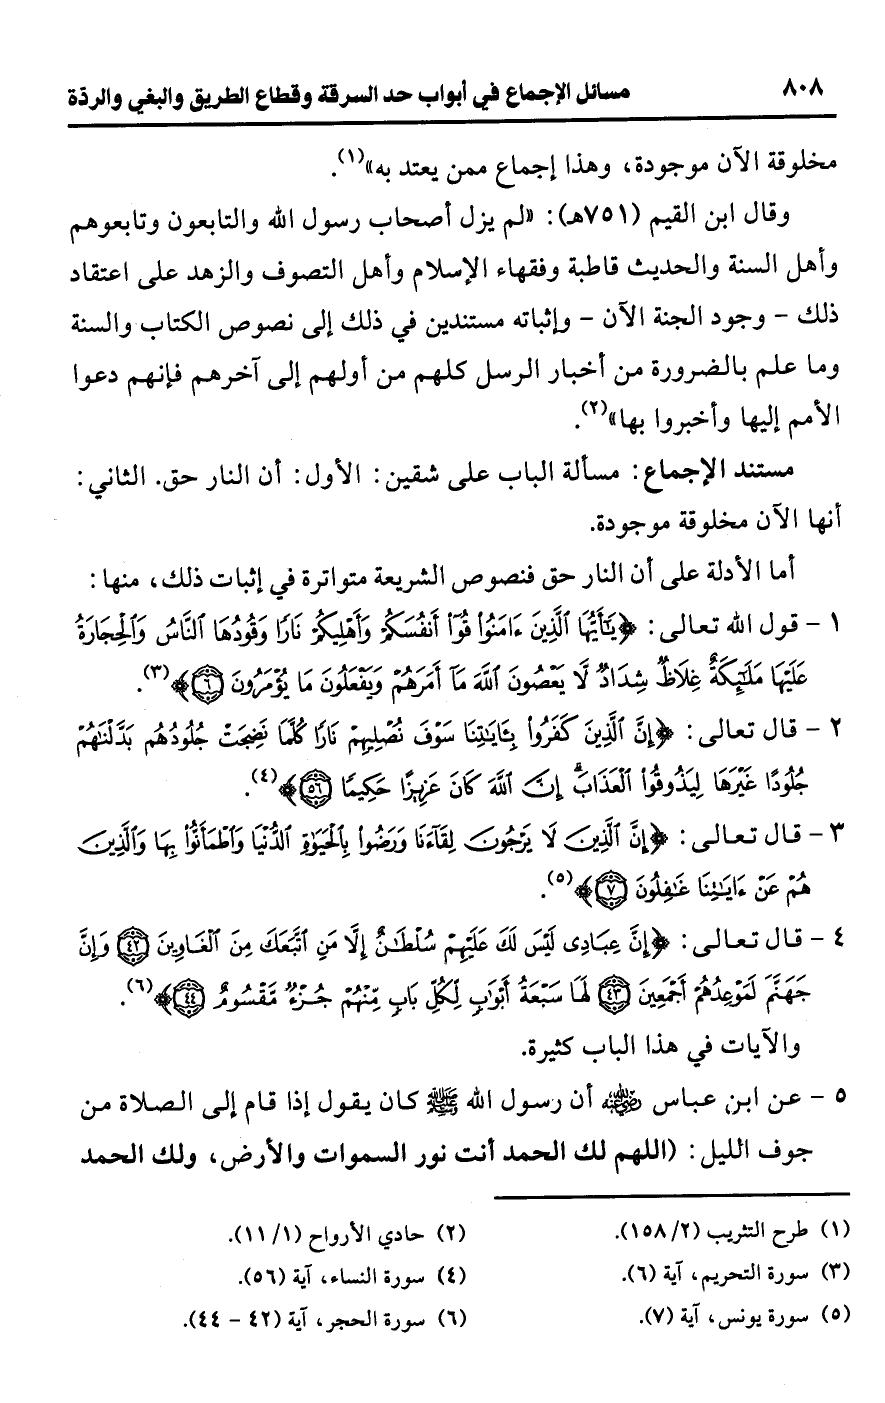 ٨٠٨ مسائل الإجماع في أبواب حد السرقة وقطاع الطريق والبغي والردّة
مخلوقة الآن موجودة، وهذا إجماع ممن يعتد به»(١).
وقال ابن القيم (٧٥١هـ): «لم يزل أصحاب رسول الله والتابعون وتابعوهم
وأهل السنة والحديث قاطبة وفقهاء الإسلام وأهل التصوف والزهد على اعتقاد
ذلك - وجود الجنة الآن - وإثباته مستندين في ذلك إلى نصوص الكتاب والسنة
وما علم بالضرورة من أخبار الرسل كلهم من أولهم إلى آخرهم فإنهم دعوا
الأمم إليها وأخبروا بها»(٢).
مستند الإجماع: مسألة الباب على شقين: الأول: أن النار حق. الثاني:
أنها الآن مخلوقة موجودة.
أما الأدلة على أن النار حق فنصوص الشريعة متواترة في إثبات ذلك، منها:
١ - قول الله تعالى: ﴿يَٰٓأَيُّهَا ٱلَّذِينَ ءَامَنُوا۟ قُوٓا۟ أَنفُسَكُمْ وَأَهْلِيكُمْ نَارًا وَقُودُهَا ٱلنَّاسُ وَٱلْحِجَارَةُ
عَلَيْهَا مَلَٰٓئِكَةٌ غِلَاظٌ شِدَادٌ لَّا يَعْصُونَ ٱللَّهَ مَآ أَمَرَهُمْ وَيَفْعَلُونَ مَا يُؤْمَرُونَ ٦﴾(٣).
٢ - قال تعالى: ﴿إِنَّ ٱلَّذِينَ كَفَرُوا۟ بِـَٔايَٰتِنَا سَوْفَ نُصْلِيهِمْ نَارًا كُلَّمَا نَضِجَتْ جُلُودُهُم بَدَّلْنَٰهُمْ
جُلُودًا غَيْرَهَا لِيَذُوقُوا۟ ٱلْعَذَابَ ۗ إِنَّ ٱللَّهَ كَانَ عَزِيزًا حَكِيمًا ٥٦﴾(٤).
٣ - قال تعالى: ﴿إِنَّ ٱلَّذِينَ لَا يَرْجُونَ لِقَآءَنَا وَرَضُوا۟ بِٱلْحَيَوٰةِ ٱلدُّنْيَا وَٱطْمَأَنُّوا۟ بِهَا وَٱلَّذِينَ
هُمْ عَنْ ءَايَٰتِنَا غَٰفِلُونَ ٧﴾(٥).
٤ - قال تعالى: ﴿إِنَّ عِبَادِى لَيْسَ لَكَ عَلَيْهِمْ سُلْطَٰنٌ إِلَّا مَنِ ٱتَّبَعَكَ مِنَ ٱلْغَاوِينَ ٤٢ وَإِنَّ
جَهَنَّمَ لَمَوْعِدُهُمْ أَجْمَعِينَ ٤٣ لَهَا سَبْعَةُ أَبْوَٰبٍ لِّكُلِّ بَابٍ مِّنْهُمْ جُزْءٌ مَّقْسُومٌ ٤٤﴾(٦).
والآيات في هذا الباب كثيرة.
٥ - عن ابن عباس رضي الله عنه أن رسول الله ﷺ كان يقول إذا قام إلى الصلاة من
جوف الليل: (اللهم لك الحمد أنت نور السموات والأرض، ولك الحمد
(١) طرح التثريب (٢/ ١٥٨). (٢) حادي الأرواح (١/ ١١).
(٣) سورة التحريم، آية (٦). (٤) سورة النساء، آية (٥٦).
(٥) سورة يونس، آية (٧). (٦) سورة الحجر، آية (٤٢ - ٤٤).